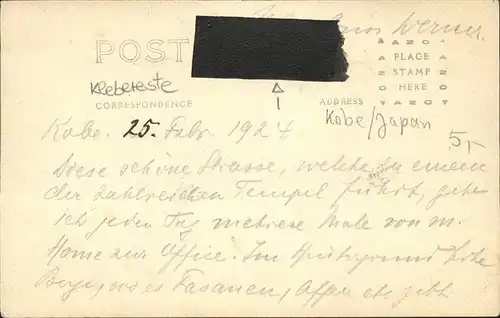 Werner
AZO
POST
PLACE
STAMP
HERE
AZO
Klebereste
CORRESPONDENCE
ADDRESS
Kobe/Japan
5,-
Kobe. 25. Febr. 1924
Diese schöne Strasse, welche zu einem
der zahlreichen Tempel führt, gehe
ich jeden Tag mehrere Male von m.
Home zur Office. Im Hintergrund
Berge, wo es Fasanen, Affen etc gibt